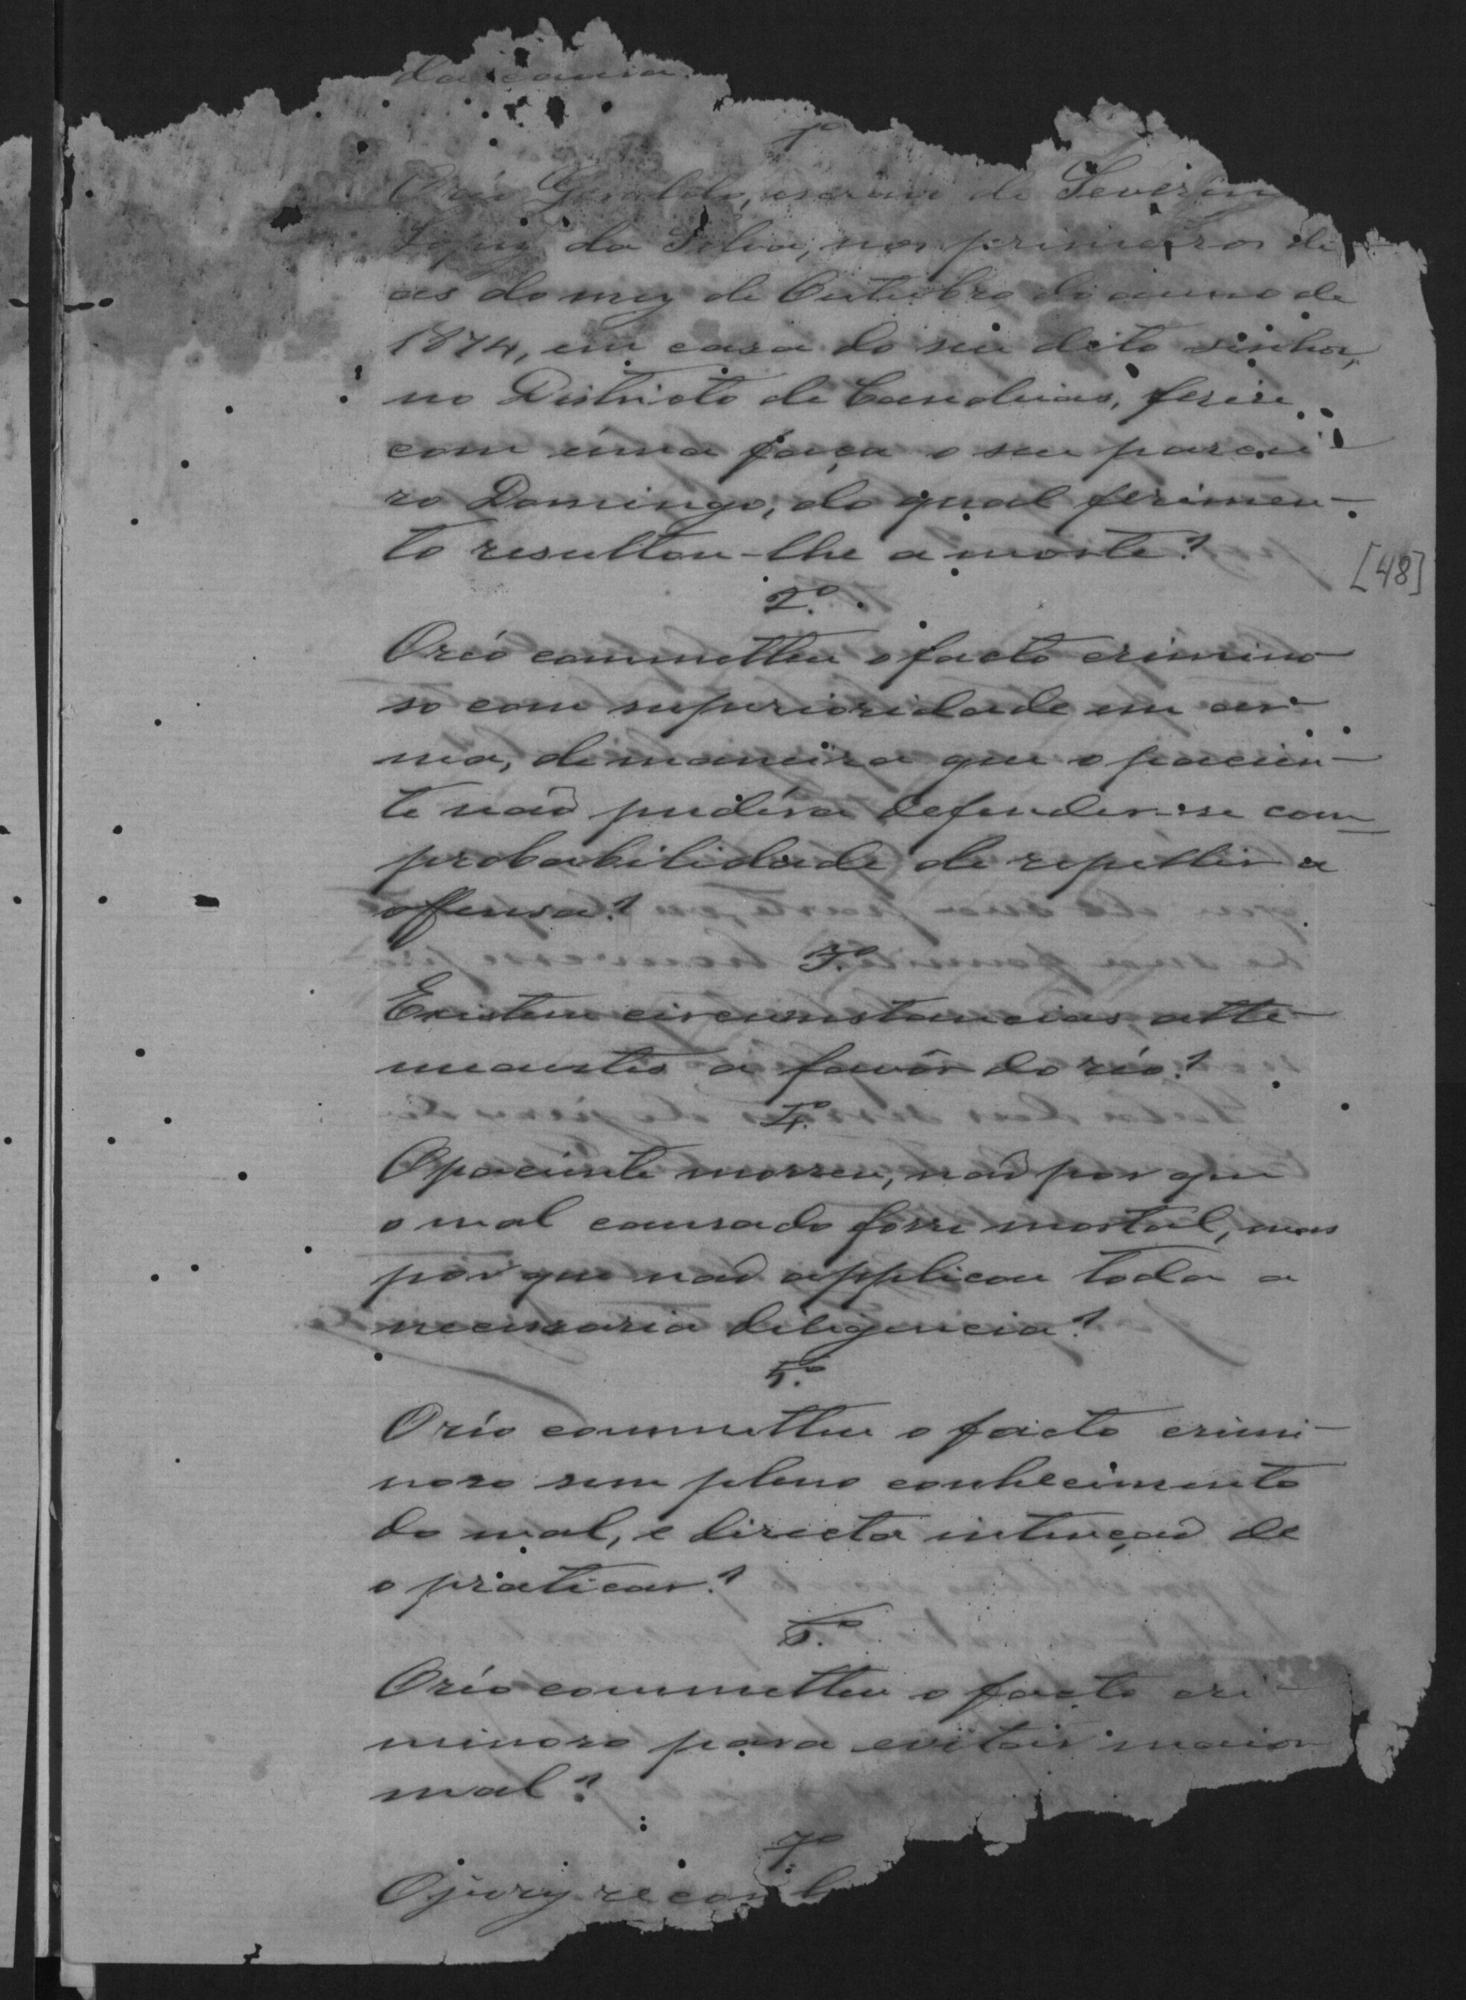 da causa.
1º
O réo Geraldo, escravo de Severin
Lopes da Silva, nos primeiros di
as do mez de Outubro do anno de
1874, em casa do seu dito sinhor,
no Districto de Candeias, ferio
com uma faca o seu parcei-
ro Domingo, do qual ferimen-
to resultou-lhe a morte?
[48]
2º.
O réo commetteu o facto crimino
so com superioridade em ar-
ma, de maneira que o pacien-
te naõ pudéra defender-se com
probabilidade de repellir a
offensa?
3º.
Existem circumstancias atte-
nuantes a favôr do réo?
4º.
O paciente morreu, naõ por que
o mal causado fosse mortal, mas
por que naõ applicou toda a
necessaria diligencia?
5º.
O réo commetteu o facto crimi-
noso sem pleno conhecimento
do mal, e directa intençaõ de
o praticar?
6º.
O réo commetteu o facto cri-
minoso para evitar maior
mal?
7º
O jury recon